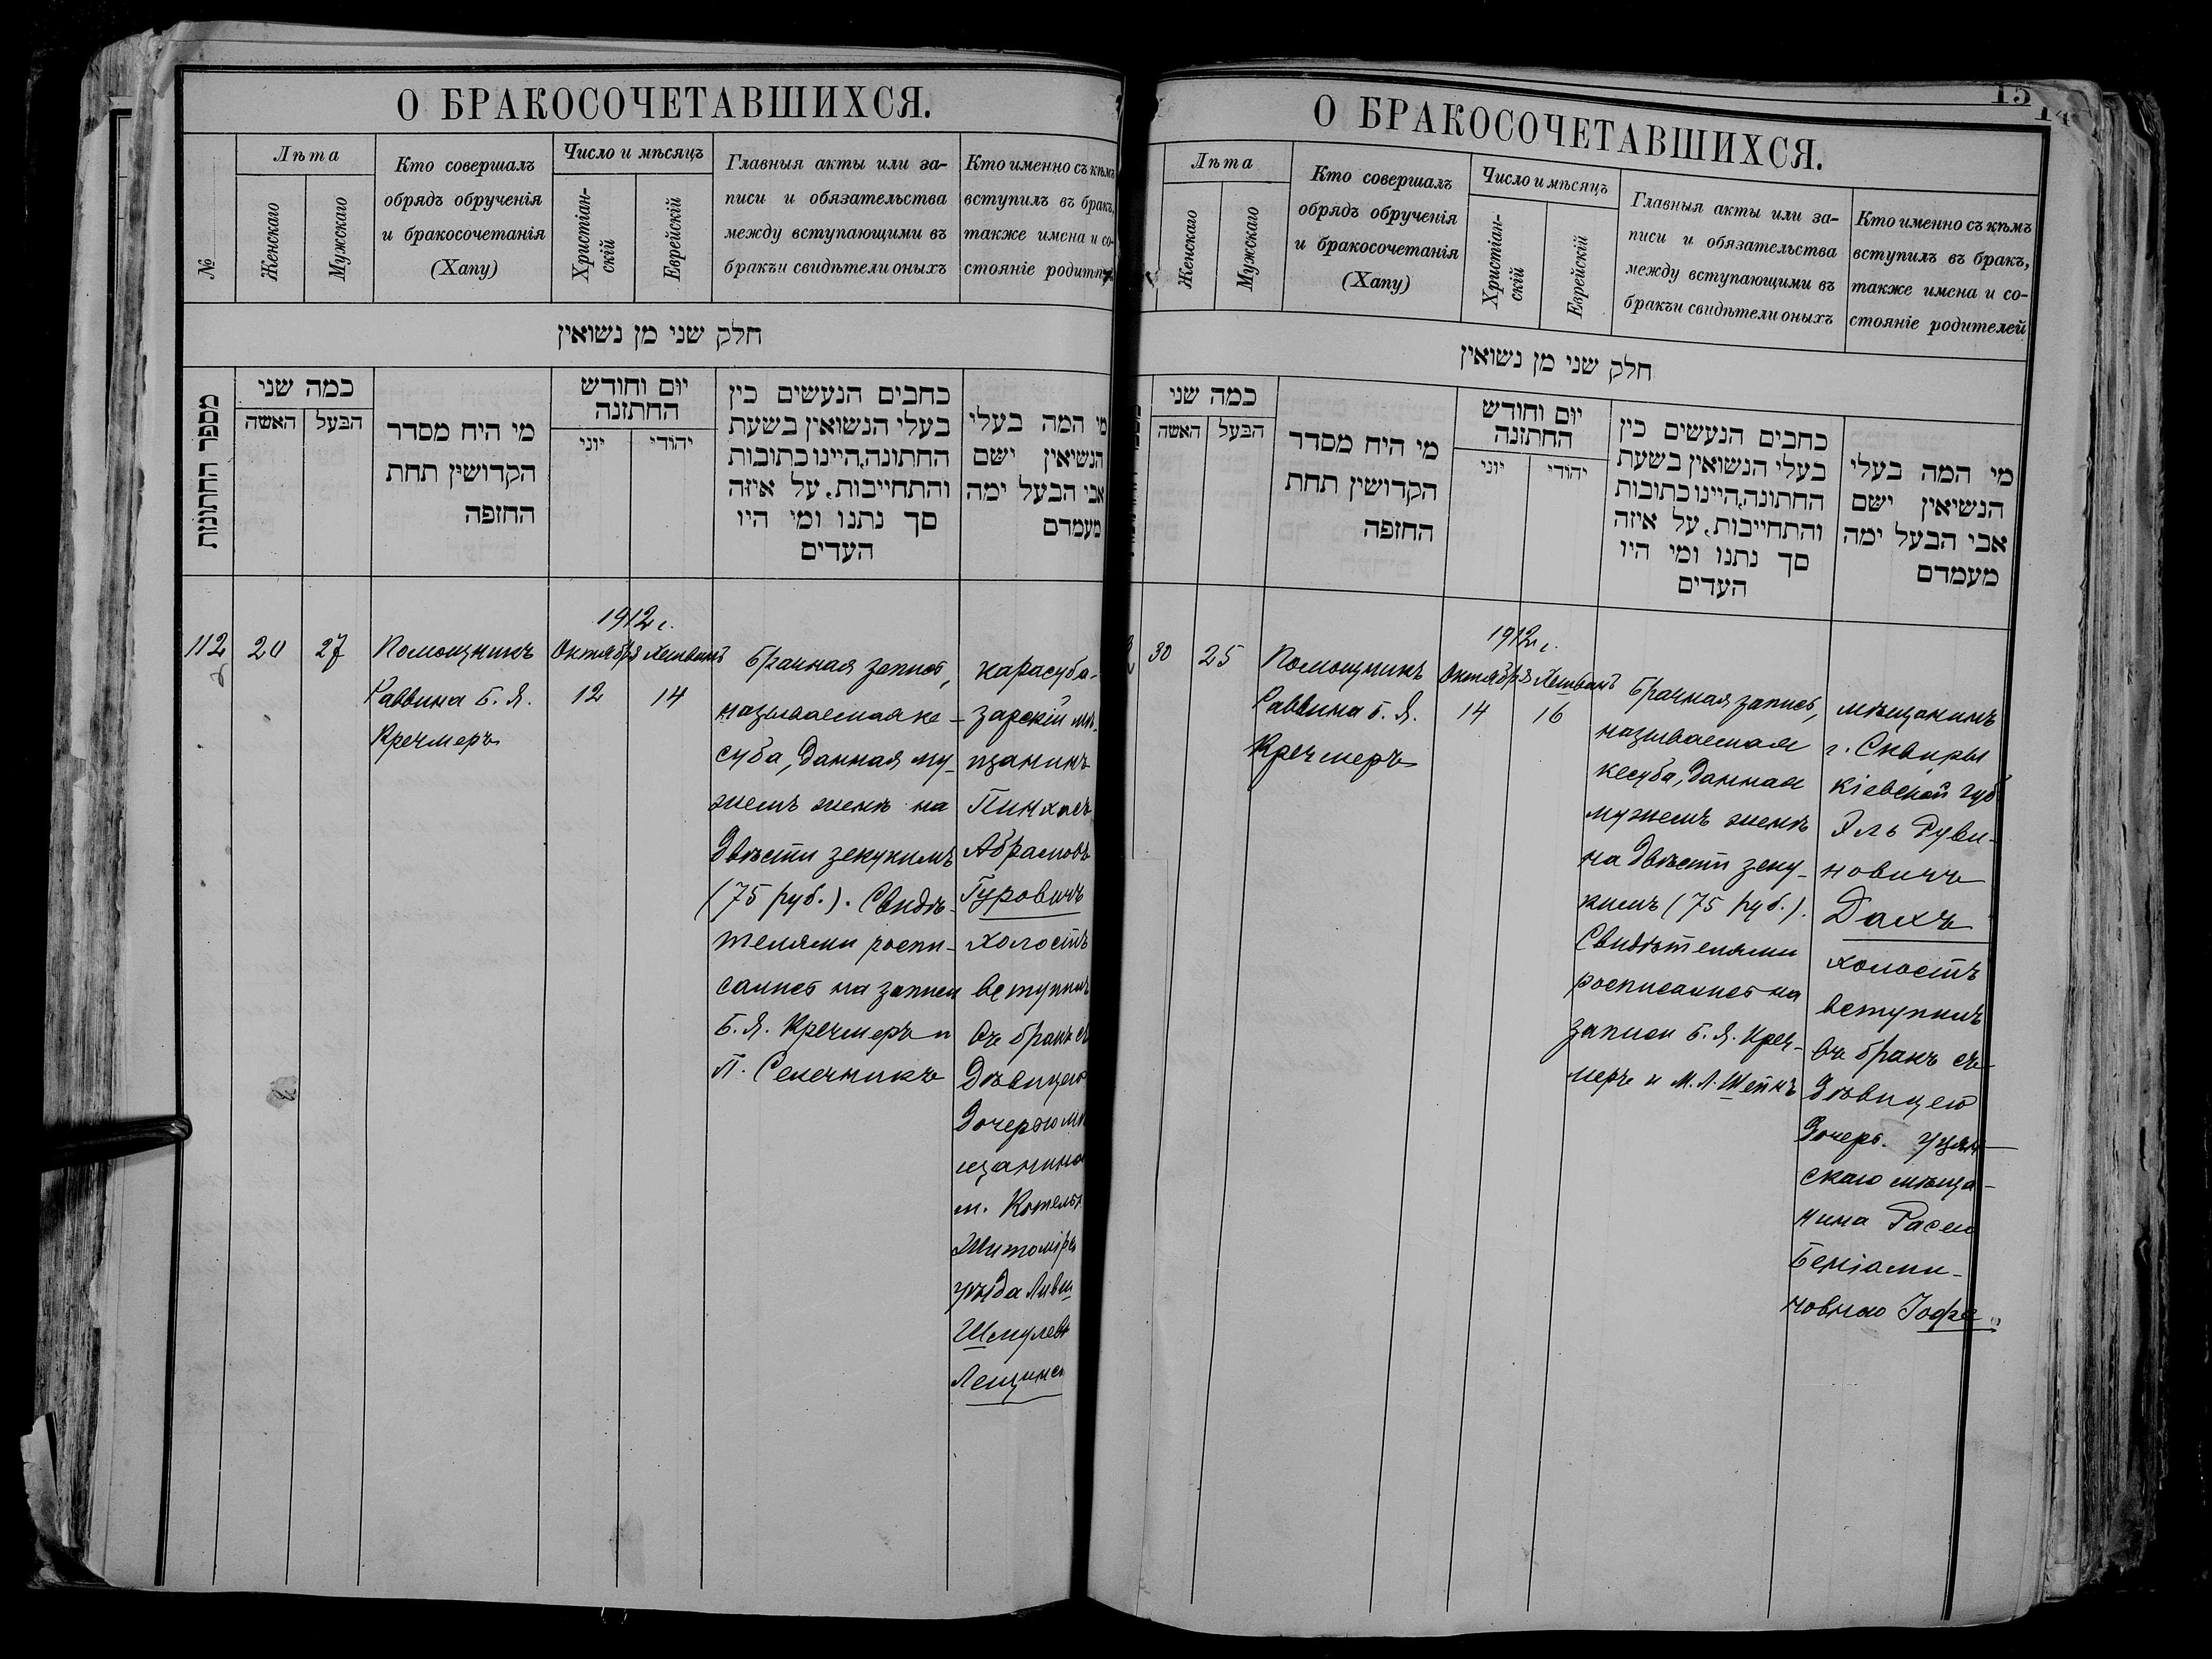 О БРАКОСОЧЕТАВШИХСЯ.
№
Лѣта
Женскаго
Мужскаго
Кто совершалъ
обрядъ обрученія
и бракосочетанія
(Хапу)
Число и мѣсяцъ
Христіан-
скій
Еврейскій
Главныя акты или за-
писи и обязательства
между вступающими въ
бракъ и свидѣтели оныхъ
Кто именно съ кѣмъ
вступилъ въ бракъ,
также имена и со-
стояніе родит
חלק שני מן נשואין
מספר החתונות
כמה שני
האשה
הבעל
מי היח מסדר
הקדושין תחת
החופה
יום וחודש
החתונה
יוני
יהודי
כחבים הנעשים כין
בעלי הנשואין בשעת
החתונה, היינו כתובות
והתחייבות, על איזה
סך נתנו ומי היו
העדים
מי המה בעלי
הנשיאין ישם
אבי הבעל ימה
מעמדם
112
20
27
Помощникъ
Раввина Б. Я.
Кречмеръ
1912 г.
Октября Хешванъ
12
14
Брачная запись,
называемая ке-
суба, данная му-
жемъ женѣ на
двѣсти зекукимъ
(75 руб.). Свидѣ-
телями роспи-
сались на записи
Б. Я. Кречмеръ и
П. Селечникъ
карасуба-
зарскій мѣ-
щанинъ
Пинхасъ
Абрамовъ
Гуровичъ
холостъ
вступилъ
въ бракъ съ
дѣвицею
дочерью мѣ
щанина
м. Котельн
Житомірс
уѣзда Ливш
Шмулев
Лещинс
15
14
О БРАКОСОЧЕТАВШИХСЯ.
Лѣта
Женскаго
Мужскаго
Кто совершалъ
обрядъ обрученія
и бракосочетанія
(Хапу)
Число и мѣсяцъ
Христіан-
скій
Еврейскій
Главныя акты или за-
писи и обязательства
между вступающими въ
бракъ и свидѣтели оныхъ
Кто именно съ кѣмъ
вступилъ въ бракъ,
также имена и со-
стояніе родителей
חלק שני מן נשואין
כמה שני
האשה
הבעל
מי היח מסדר
הקדושין תחת
החופה
יום וחודש
החתונה
יוני
יהודי
כחבים הנעשים כין
בעלי הנשואין בשעת
החתונה, היינו כתובות
והתחייבות, על איזה
סך נתנו ומי היו
העדים
מי המה בעלי
הנשיאין ישם
אבי הבעל ימה
מעמדם
30
25
Помощникъ
Раввина Б. Я.
Кречмеръ
1912 г.
Октября Хешванъ
14
16
Брачная запись,
называемая
кесуба, данная
мужемъ женѣ
на двѣсти зеку-
кимъ (75 руб.).
Свидѣтелями
росписались на
записи Б. Я. Креч-
меръ и М. Л. Штейнъ
мѣщанинъ
г. Сквиры
кіевской губ
Эль Руви-
новичъ
Дахъ
холостъ
вступилъ
въ бракъ съ
дѣвицею
дочерь. Уцян-
скаго мѣща-
нина Расею
Беніами-
новною Іофе.